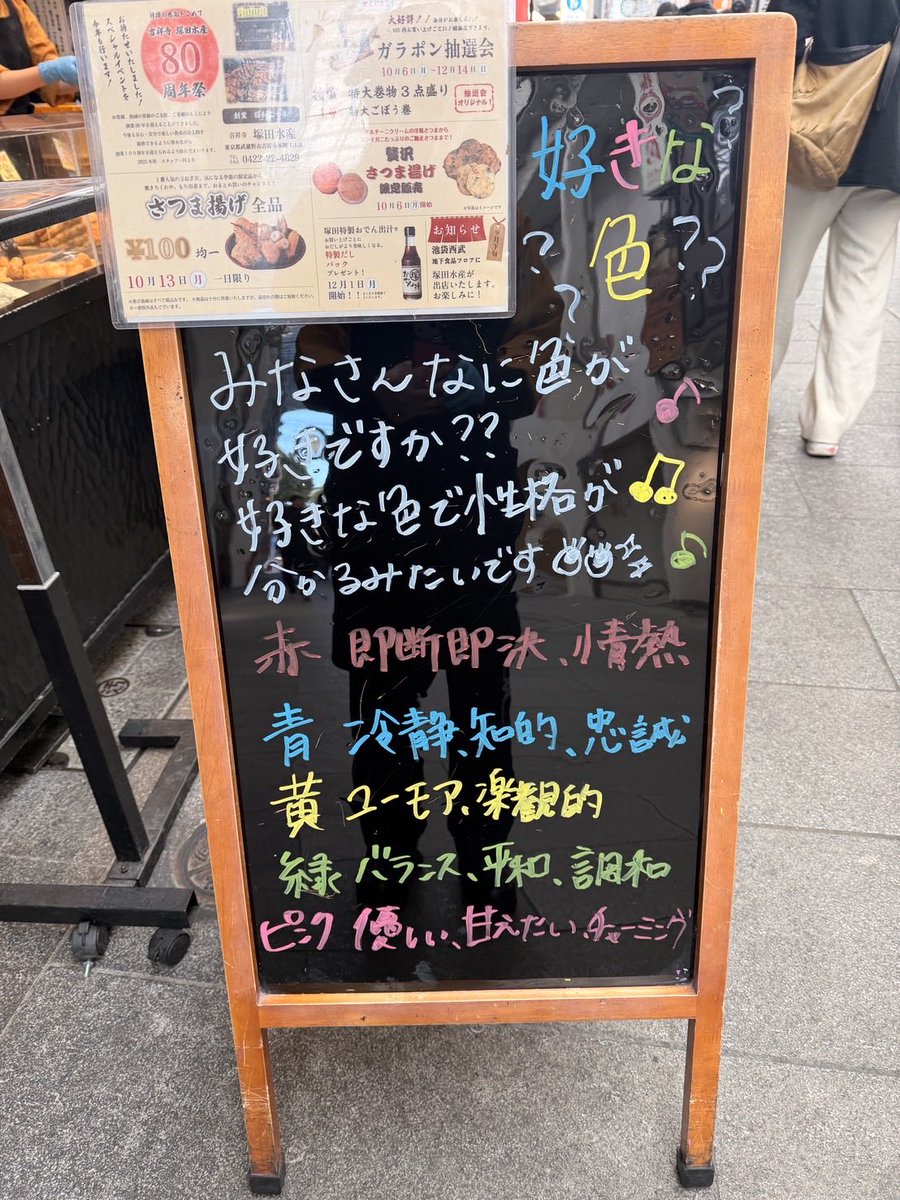 日頃の感謝をこめて
吉祥寺 塚田水産
80
周年祭
お待たせいたしました!
スペシャルイベントを
今年も行います!
吉祥寺 塚田水産
TEL
FAX 0422-22-4829
さつま揚げ 全品
¥100 均一
10月13日(月) 一日限り
大好評!!
ガラポン抽選会
10月6日(月)~12月14日(日)
特大巻物3点盛り
特大ごぼう巻
抽選会
オリジナル!
贅沢
さつま揚げ
限定販売
10月6日(月)開始
塚田特製おでん出汁
お買い上げごとに
特製だし
パック
プレゼント!
12月1日(月)
開始!!
お知らせ
池袋西武
地下食品フロアに
塚田水産が
出店いたします。
お楽しみに!
好きな?
?色??
?
みなさんなに色が
好きですか??
好きな色で性格が
分かるみたいです
赤 即断即決、情熱
青 冷静、知的、忠誠
黄 ユーモア、楽観的
緑 バランス、平和、調和
ピンク 優しい、甘えたい、チャーミング